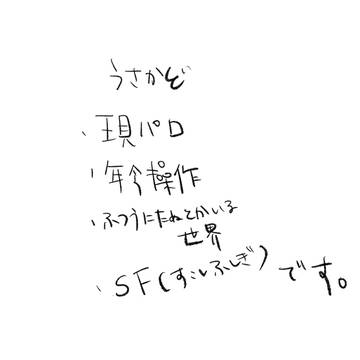 うさかぞ
・現パロ
・年令操作
・ふつうにたぬとかいる
世界
・SF(すこしふしぎ)です。